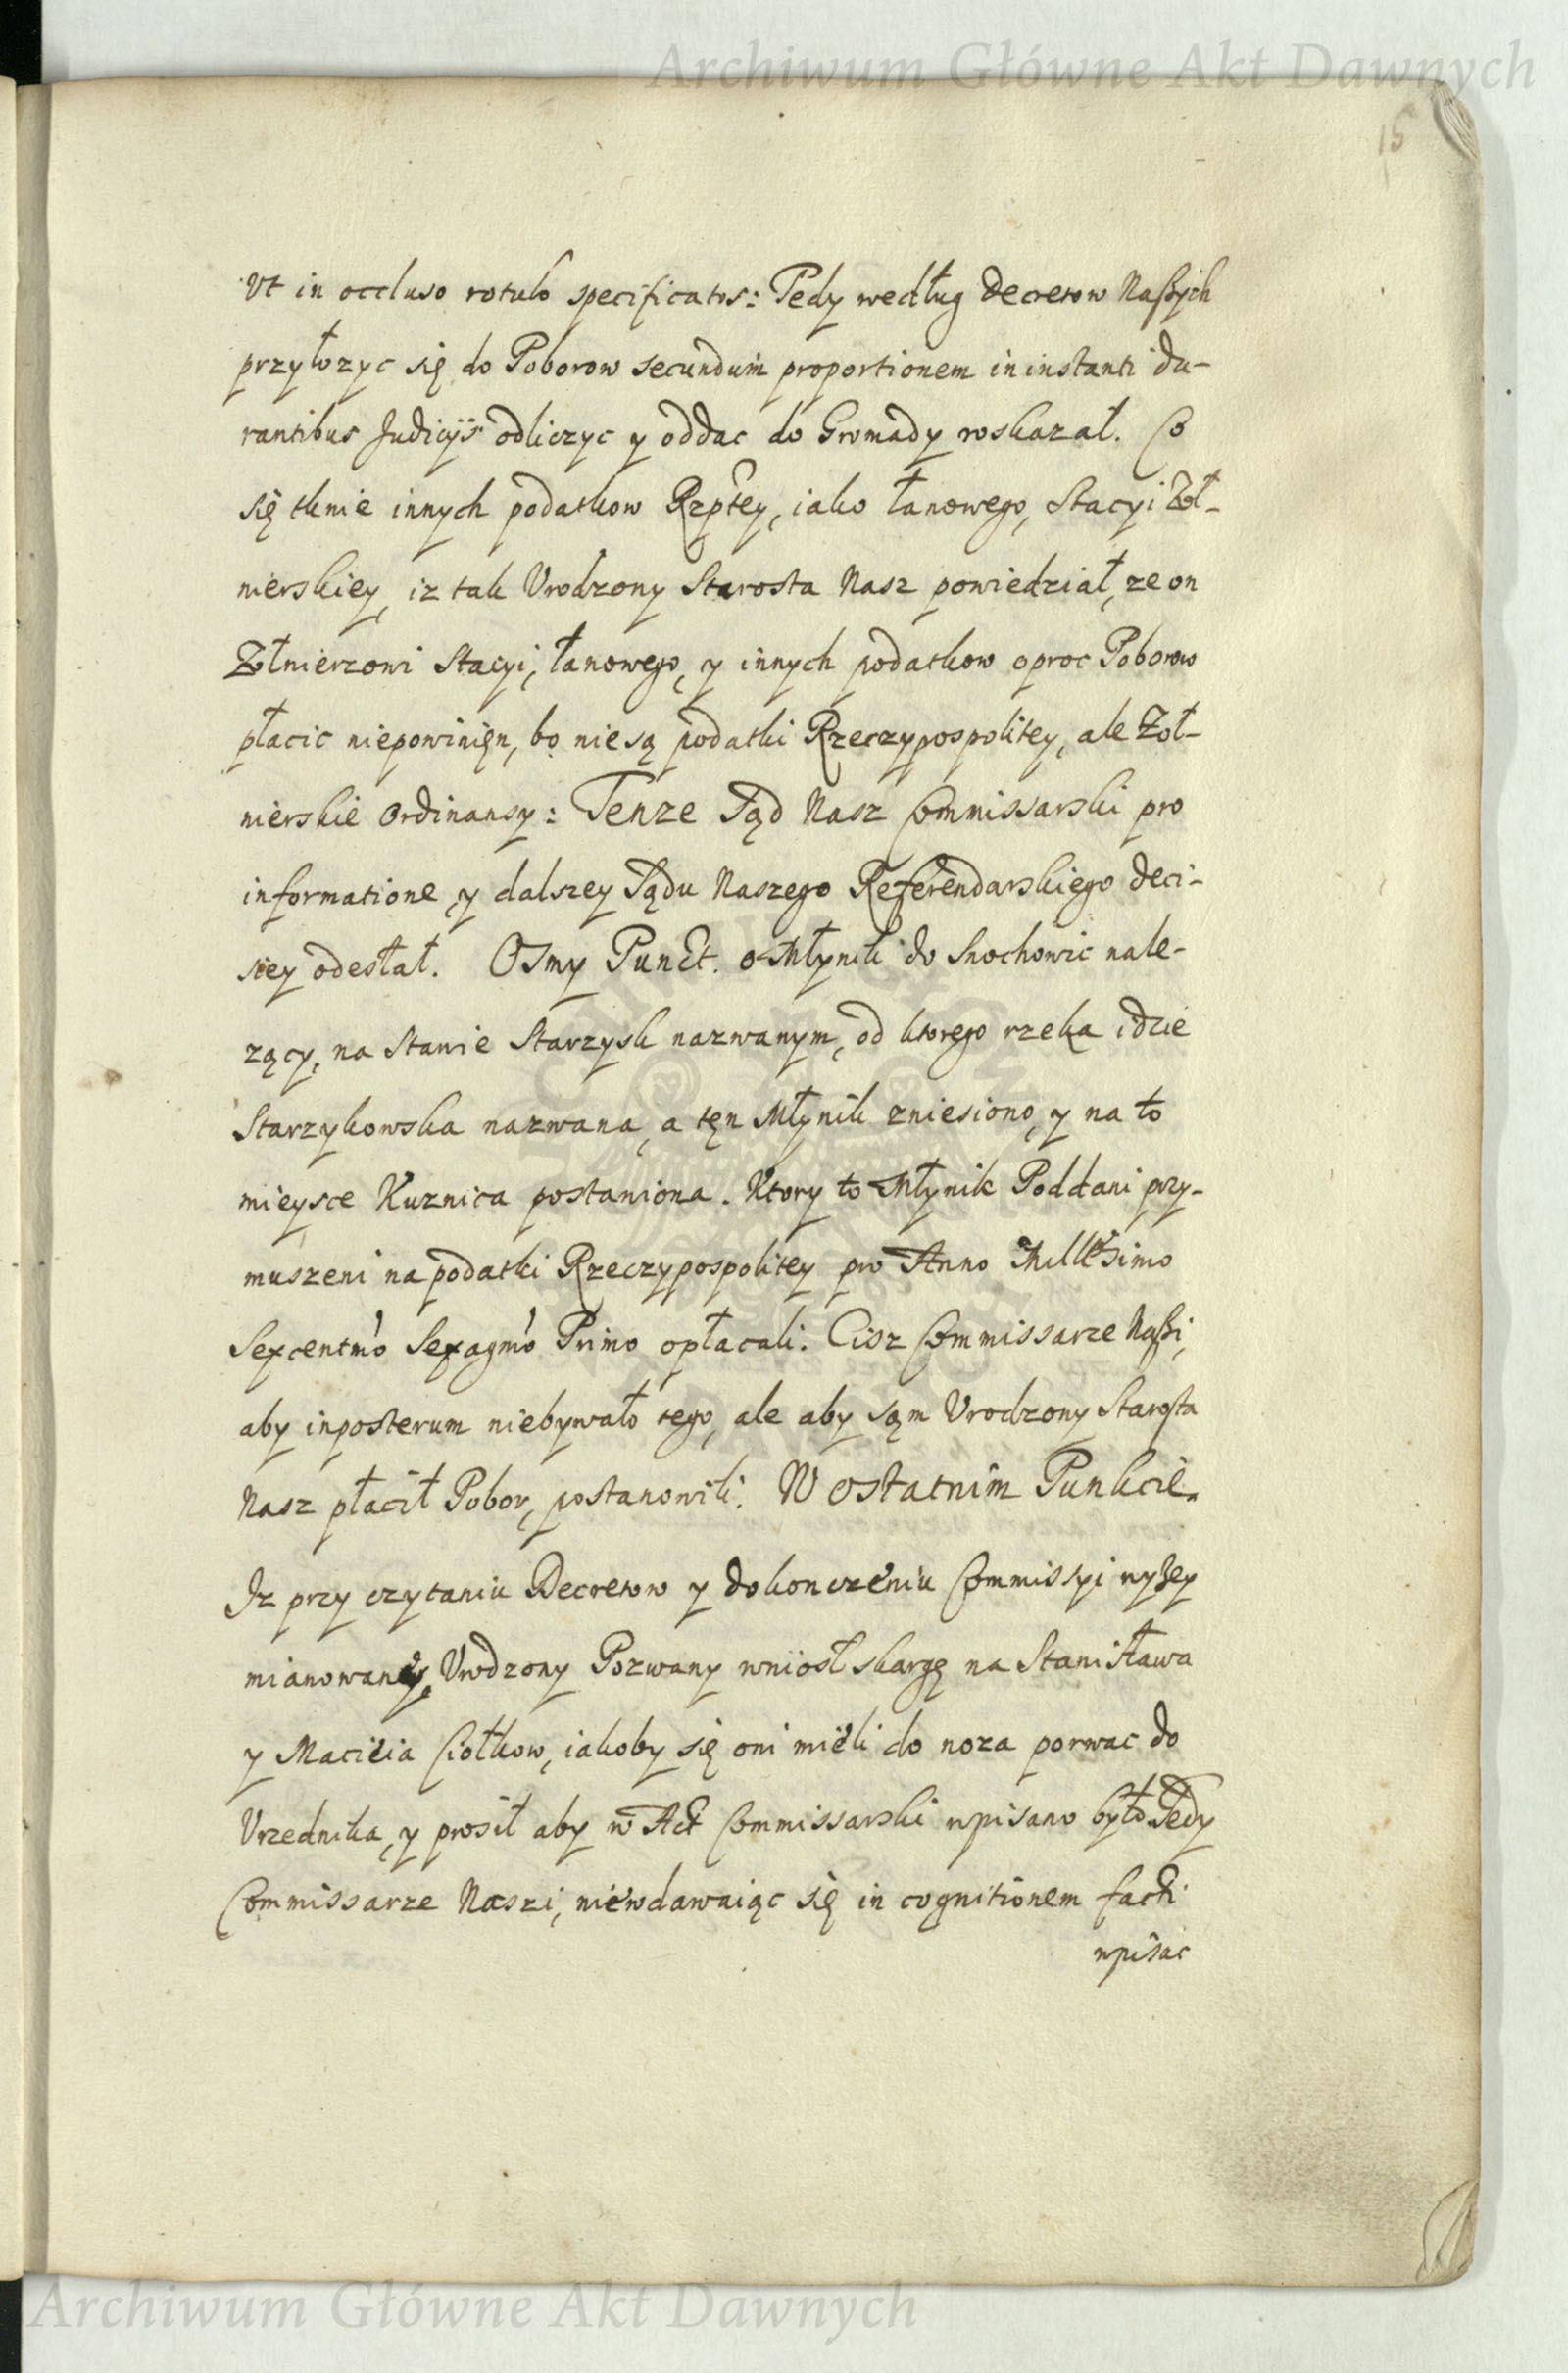 Archiwum Główne Akt Dawnych
15
Vt in occluso rotulo specificatos: Tedy według Decretow Naszych
przyłozyc się do Poborow secundum proportionem in instanti du-
rantibus Judicijs odliczyc y oddac do Gromady roskazał. Co
się tknie innych podatkow Rzptey, iako łanowego, Stacyi Zoł-
nierskiey, iz tak Vrodzony Starosta Nasz powiedział, ze on
Zołnierzowi Stacyi, łanowego, y innych podatkow oproc Poborow
płacic niepowinięn, bo nie są podatki Rzeczypospolitey, ale Zoł-
nierskie Ordinansy: Tenze Sąd Nasz Commissarski pro
informatione y dalszey Sądu Naszego Referendarskiego deci-
siey odesłał. Osmy Punct. o Młynik do Snochowic nale-
zący, na Stawie Starzysk nazwanym, od ktorego rzeka idzie
Starzykowska nazwana, a tęn Młynik zniesiono, y na to
mieysce Kuznica postawiona. Ktory to Młynik Poddani przy-
muszeni na podatki Rzeczypospolitey pro Anno Millesimo
Sexcentmo Sexagmo Primo opłacali. Cisz Commissarze Naszi,
aby inposterum niebywało tego, ale aby sąm Vrodzony Starosta
Nasz płacił Pobor, postanowili. W ostatnim Punkcie.
Iz przy czytaniu Decretow y dokonczeniu Commissyi wyzey
mianowaney, Vrodzony Pozwany wniosł skargę na Stanisława
y Macieia Ciołkow, iakoby się oni mieli do noza porwac do
Vrzednika, y prosił aby w Act Commissarski wpisano było. Tedy
Commissarze Naszi, niewdawaiąc się in cognitionem facti
wpisac
Archiwum Główne Akt Dawnych